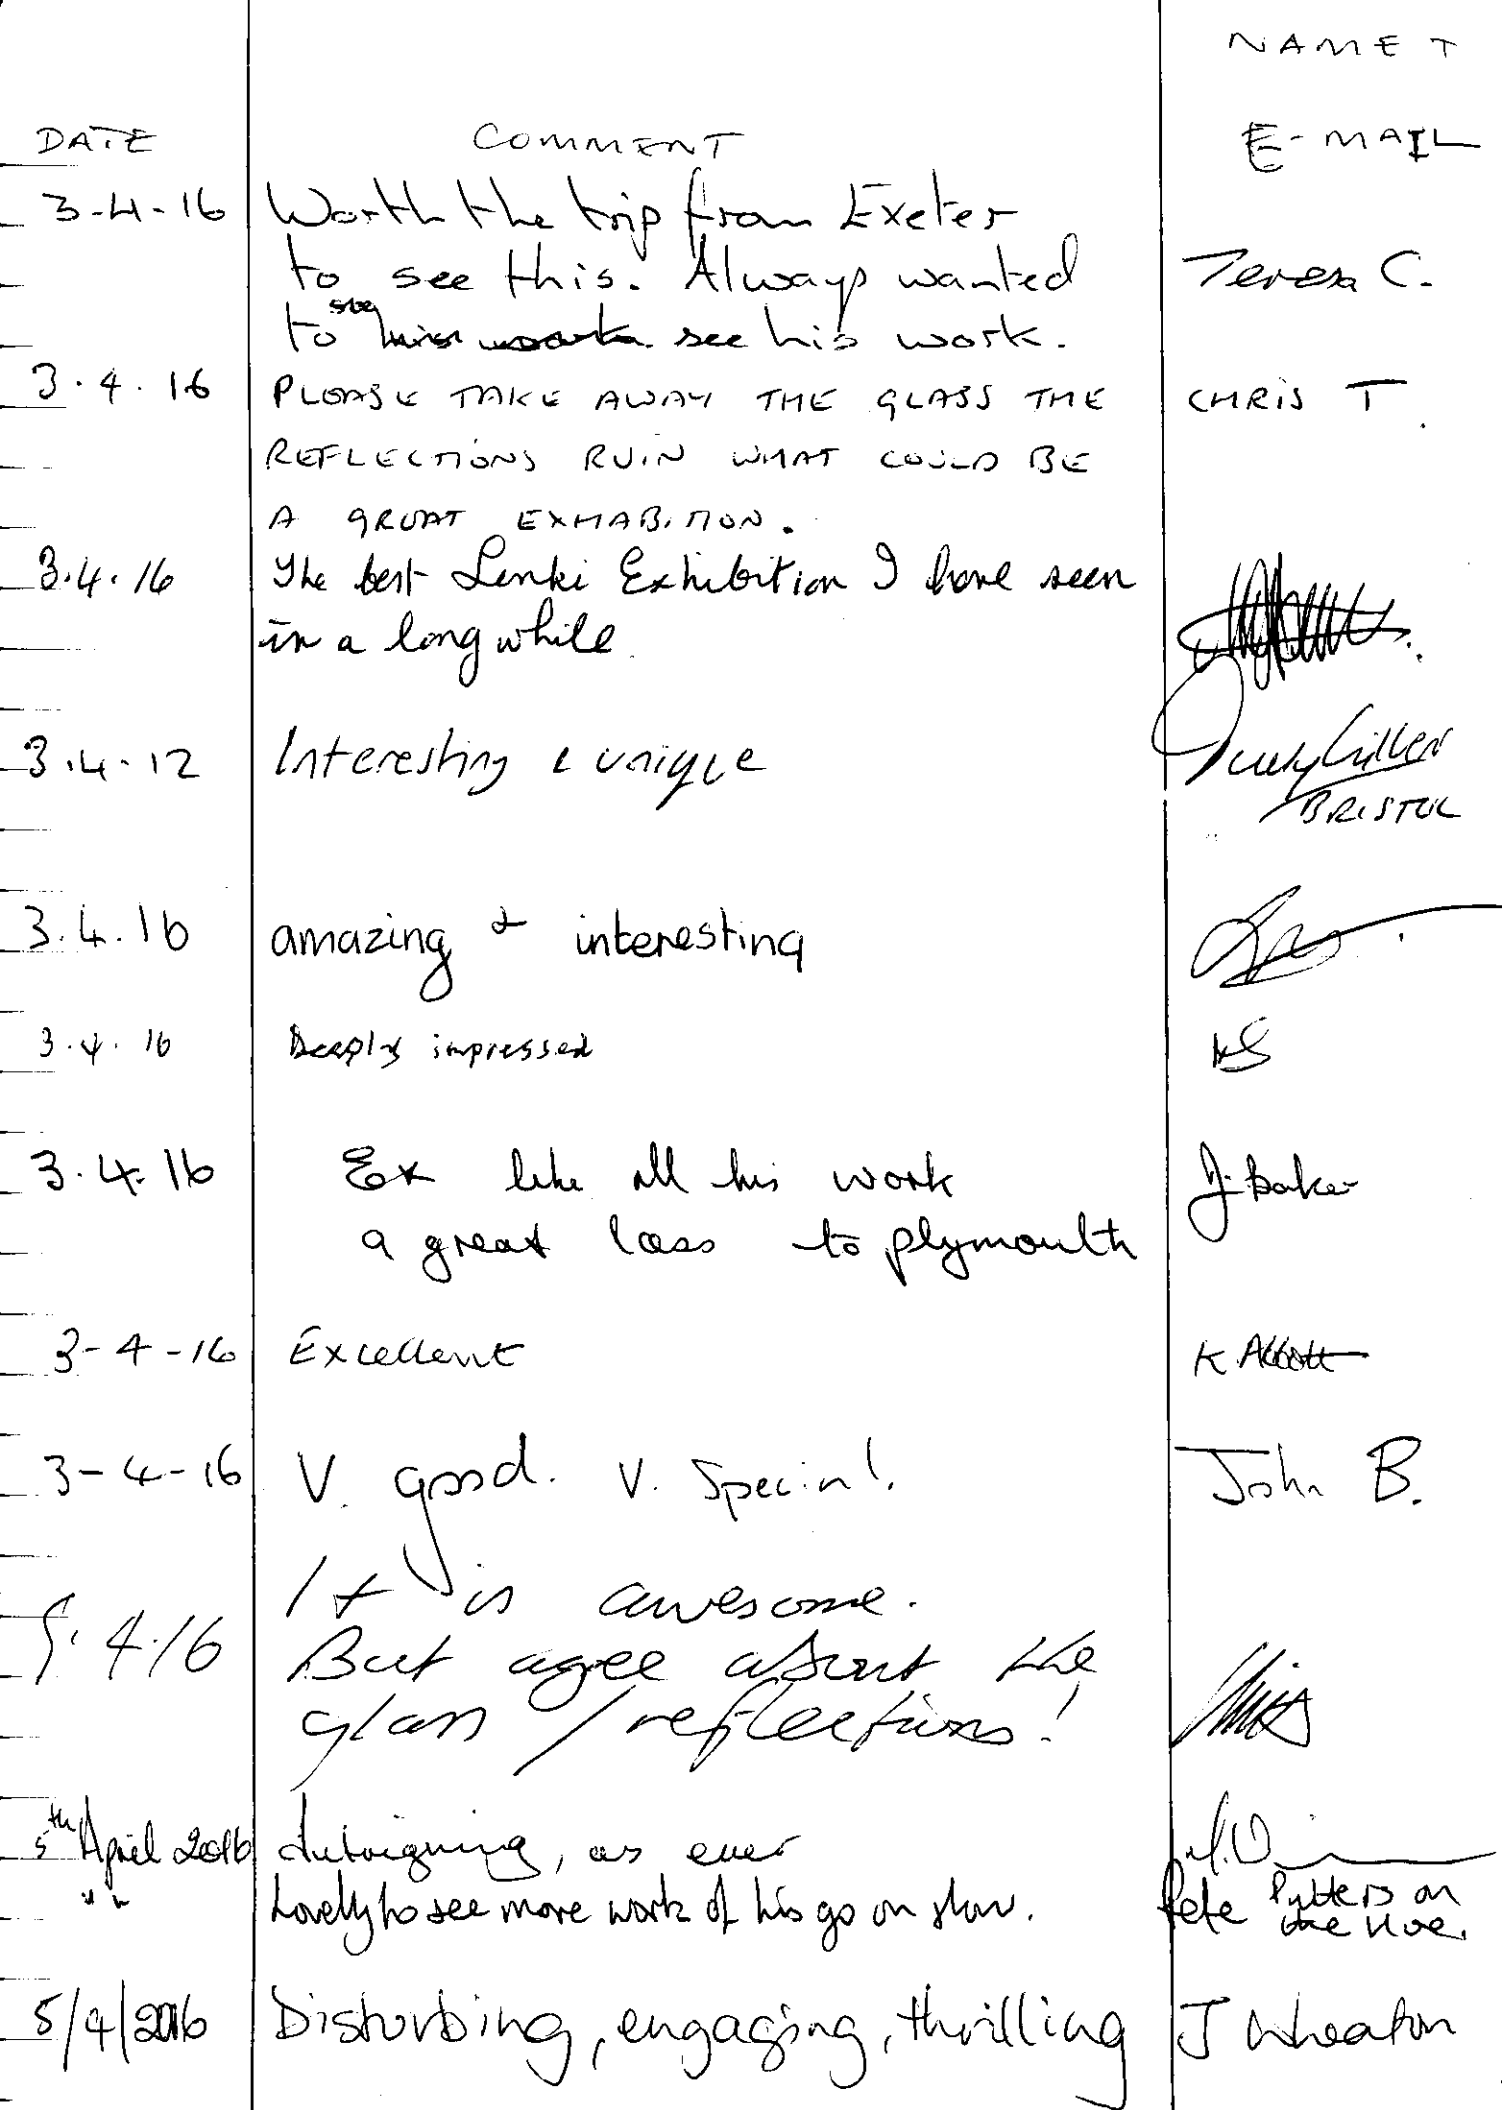 NAME +
DATE COMMENT E-MAIL
3-4-16 Worth the trip from Exeter
to see this. Always wanted Teresa C.
to see his work see his work.
3.4.16 PLEASE TAKE AWAY THE GLASS THE CHRIS T.
REFLECTIONS RUIN WHAT COULD BE
A GREAT EXHABITION.
3.4.16 The best Lenki Exhibition I have seen
in a long while
3.4.12 Interesting & unique
BRISTOL
3.4.16 amazing & interesting
3.4.16 Deeply impressed
3.4.16 Ex like all his work J. Baker
a great loss to plymouth
3-4-16 Excellent K Abbott
3-4-16 V. good. V. Special. John B.
It is awesome.
5.4.16 But agree about the
glass / reflections!
5th April 2016 Intriguing, as ever
" " Lovely to see more work of his go on show. Pete Putters on the Hoe.
5/4/2016 Disturbing, engaging, thrilling J Wheaton